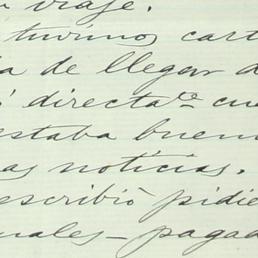 viaje.
tuvimos cart
a de llegar d
directa.te cu
estaba buen
as noticias.
escribió pidie
uales - pagad